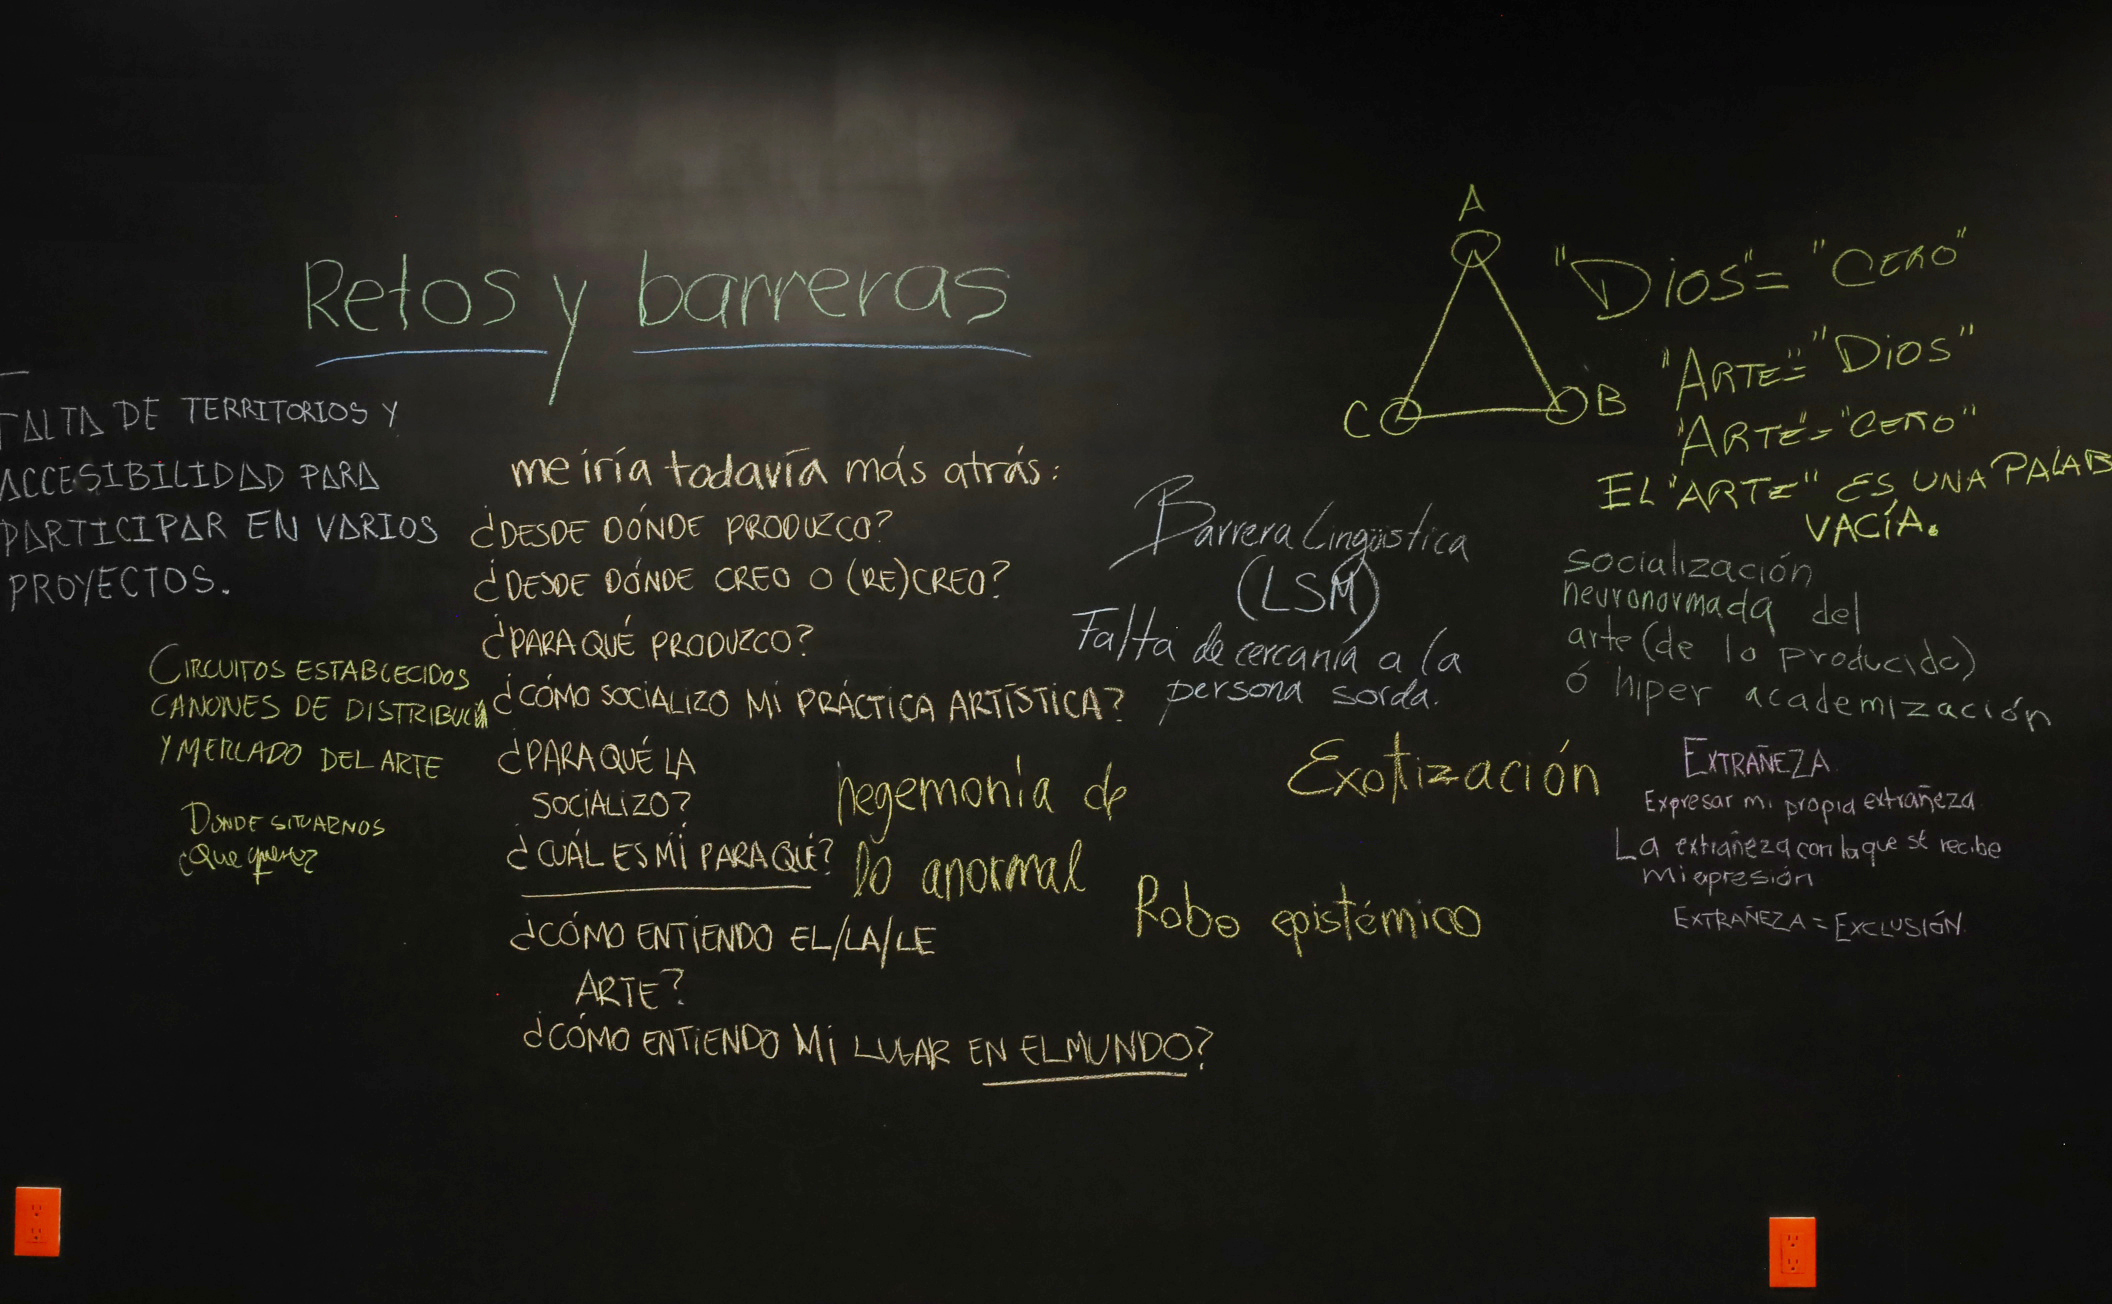 Retos y barreras
FALTA DE TERRITORIOS Y
ACCESIBILIDAD PARA
PARTICIPAR EN VARIOS
PROYECTOS.
CIRCUITOS ESTABLECIDOS
CANONES DE DISTRIBUCIÓN
Y MERCADO DEL ARTE
DONDE SITUARNOS
¿Que quere?
me iría todavía más atrás:
¿DESDE DÓNDE PRODUZCO?
¿DESDE DÓNDE CREO O (RE)CREO?
¿PARA QUÉ PRODUZCO?
¿CÓMO SOCIALIZO MI PRÁCTICA ARTÍSTICA?
¿PARA QUÉ LA
SOCIALIZO?
¿CUÁL ES MÍ PARA QUÉ?
¿CÓMO ENTIENDO EL/LA/LE
ARTE?
¿CÓMO ENTIENDO MI LUGAR EN EL MUNDO?
hegemonía de
lo anormal
Barrera Lingüistica
(LSM)
Falta de cercanía a la
persona sorda.
Exotización
Robo epistémico
A
C B
"DIOS" = "CERO"
"ARTE" = "DIOS"
"ARTE" = "CERO"
EL "ARTE" ES UNA PALAB
VACÍA.
socialización
neuronormada del
arte (de lo producido)
ó hiper academización
EXTRAÑEZA
Expresar mi propia extrañeza
La extrañeza con la que se recibe
mi expresión
EXTRAÑEZA = EXCLUSIÓN.